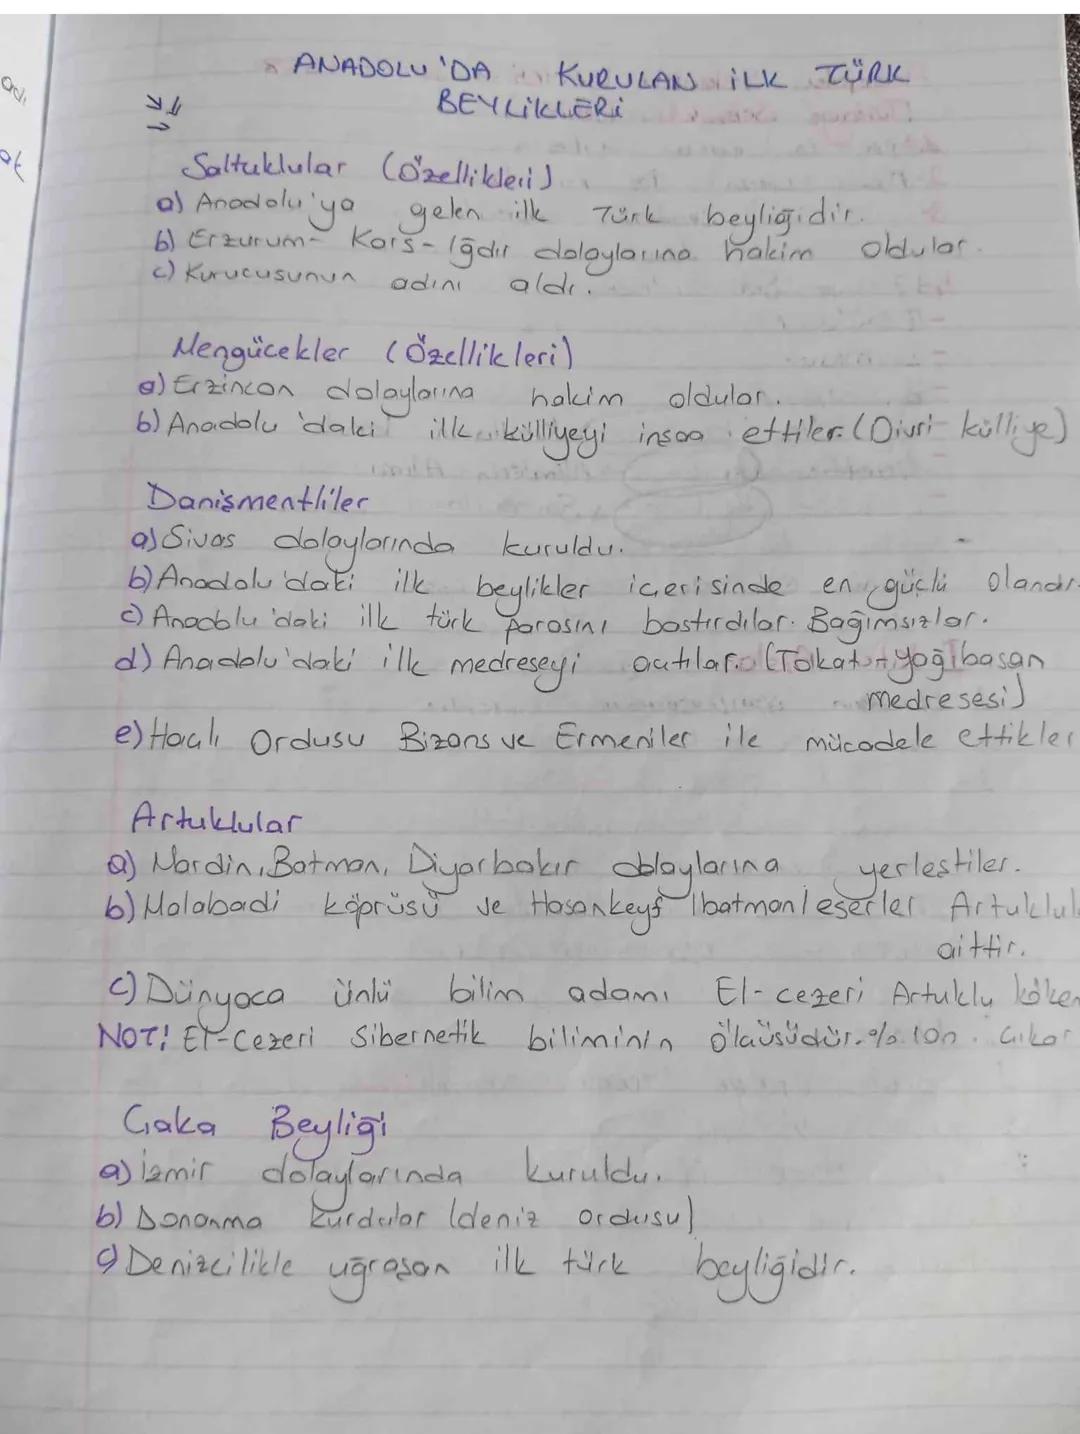 ANADOLU'DA KURULAN İLK TÜRK
BEYLİKLERİ
Saltuklular (Özellikleri)
a) Anadolu'ya gelen ilk Türk beyliğidir.
b) Erzurum- Kars- Iğdır dolaylarına hakim oldular.
c) Kurucusunun adını aldı.
Mengücekler (Özellikleri)
a) Erzincan dolaylarına hakim oldular.
b) Anadolu'daki ilk külliyeyi insaa ettiler. (Divri külliye)
Danişmentliler
a) Sivas dolaylarında kuruldu.
b) Anadolu'daki ilk beylikler içerisinde en güçlü olandır.
c) Anadolu'daki ilk türk parasını bastırdılar. Bağımsızlar.
d) Anadolu'daki ilk medreseyi açtılar. (Tokat + Yağıbasan
medresesi)
e) Haçlı Ordusu Bizans ve Ermeniler ile mücadele ettikler
Artuklular
a) Mardin, Batman, Diyarbakır dolaylarına yerleştiler.
b) Malabadi köprüsü ve Hasankeyf (batman) eserler Artuklul
aittir.
c) Dünyaca ünlü bilim adamı El-cezeri Artuklu köken
NOT! El-Cezeri Sibernetik biliminin öncüsüdür. % 100 çıkar
Çaka Beyliği
a) İzmir dolaylarında kuruldu.
b) Donanma kurdular (deniz ordusu)
c) Denizcilikle uğraşan ilk türk beyliğidir.